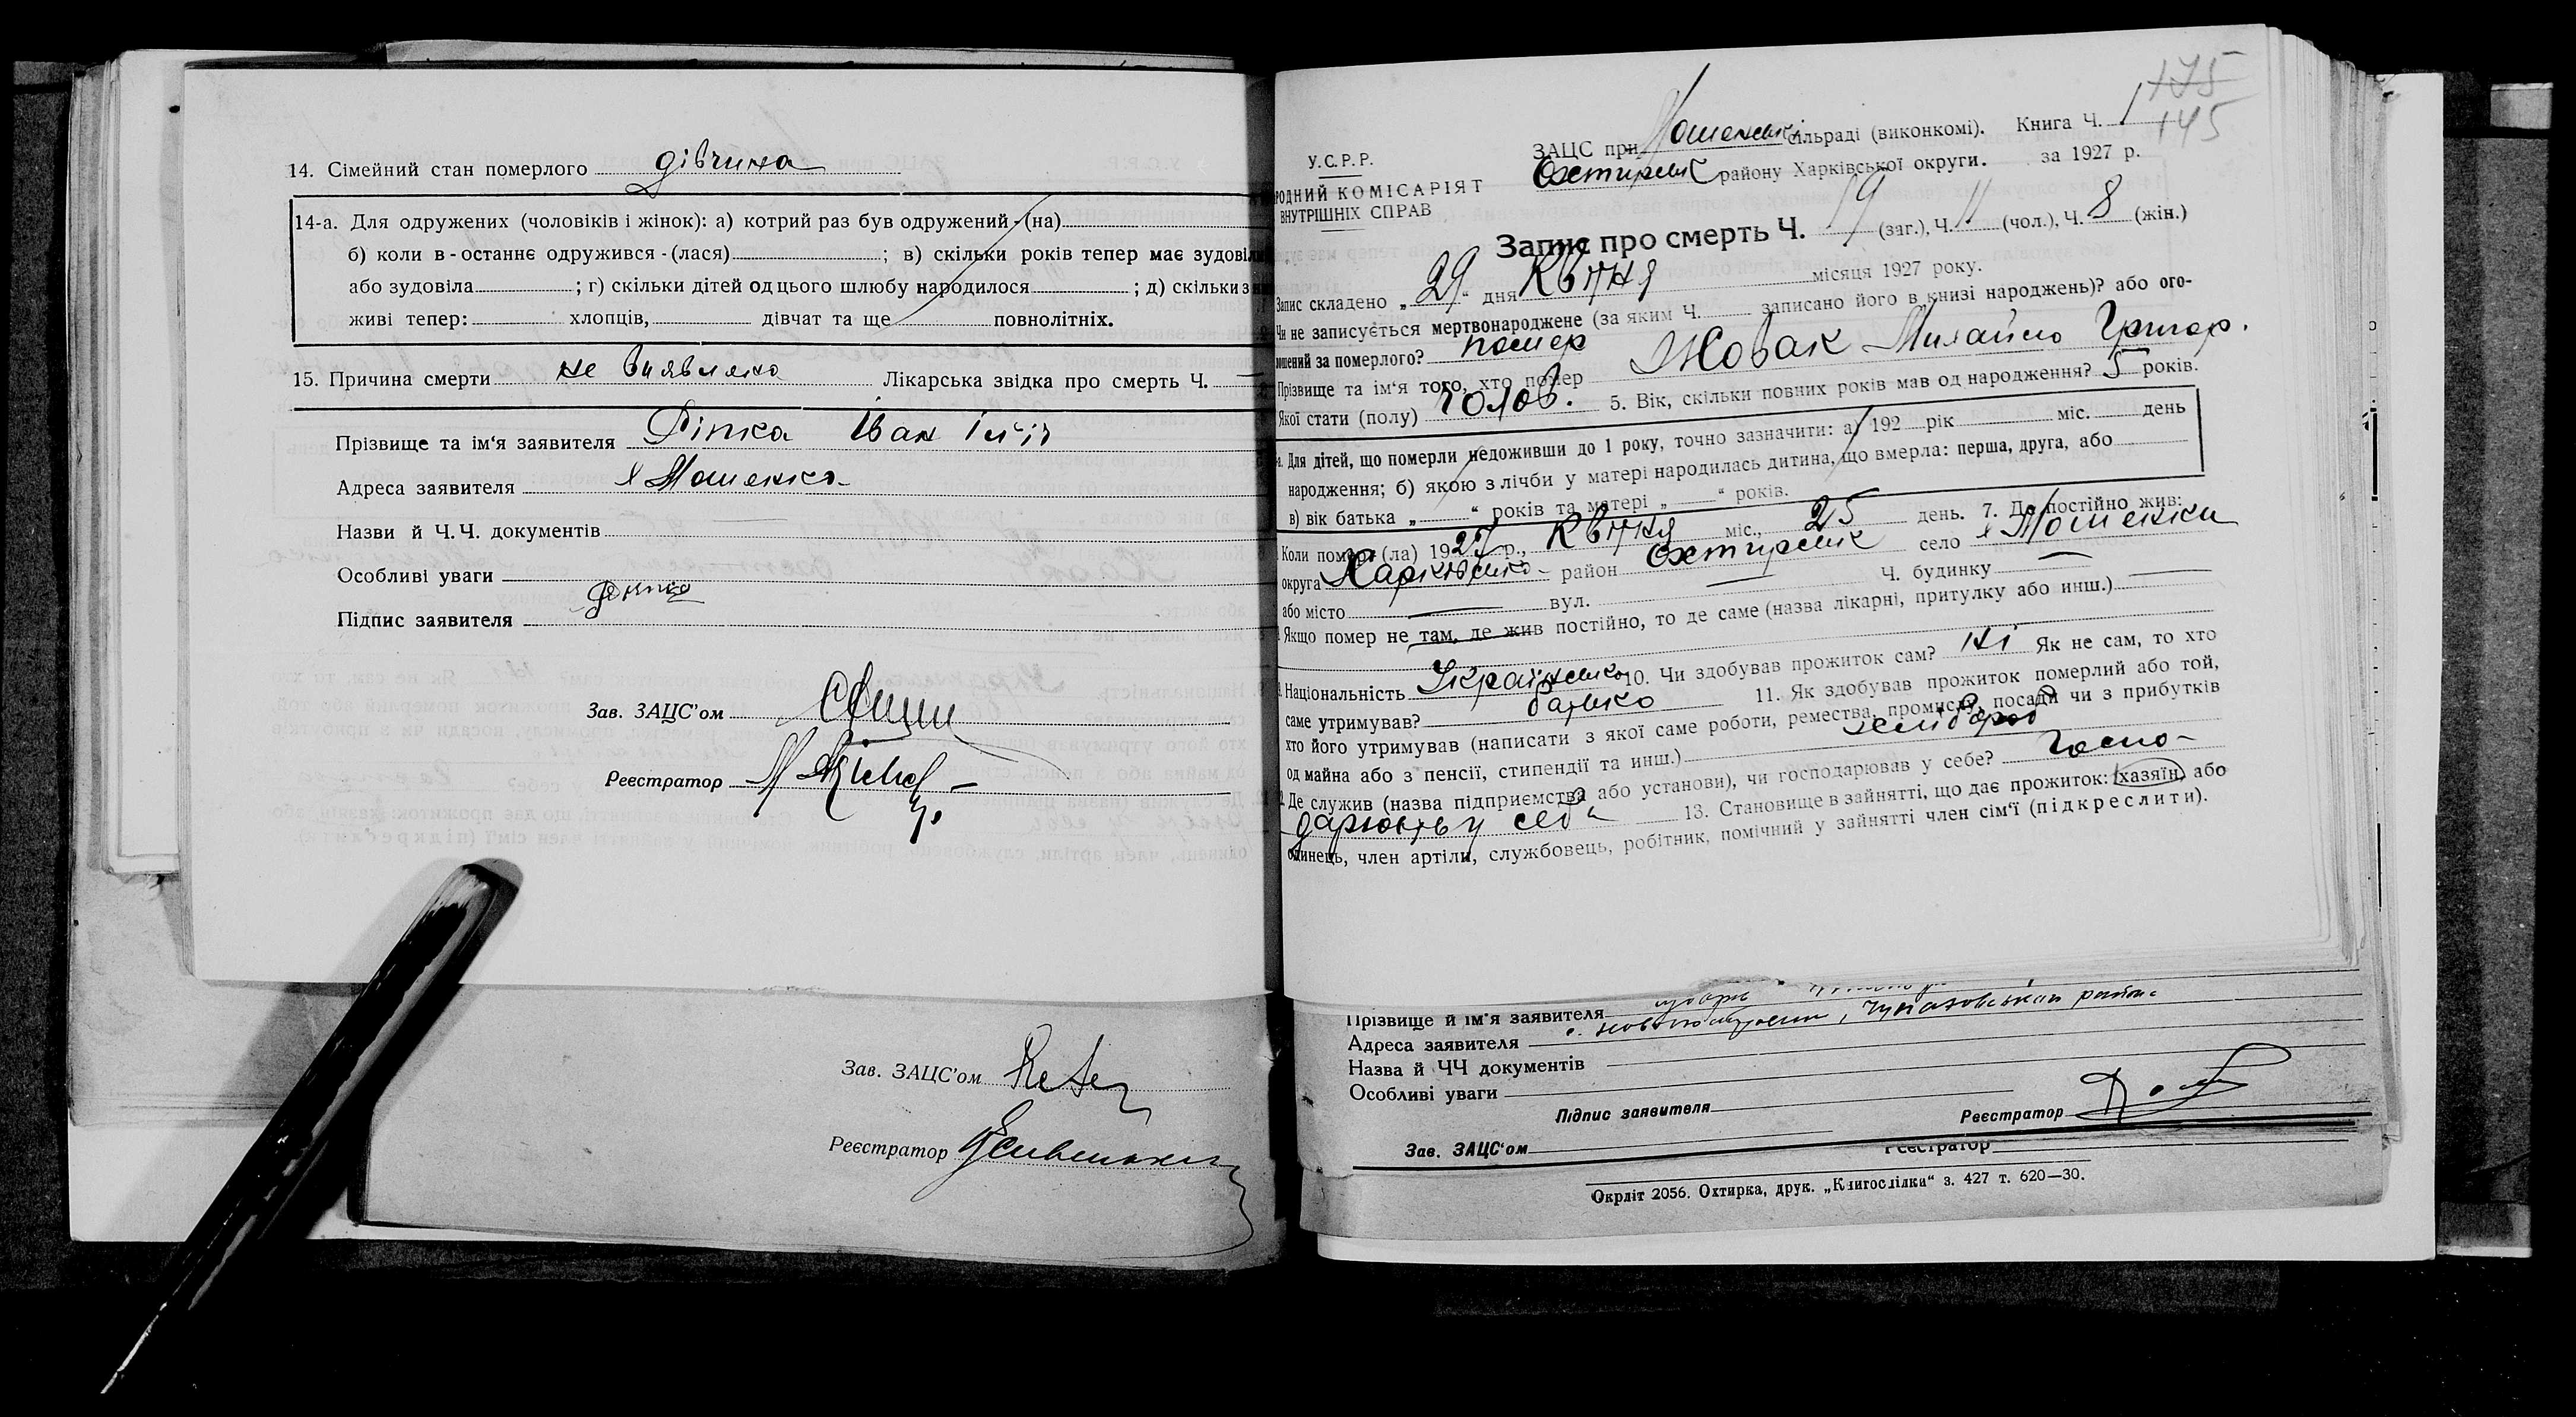 14. Сімейний стан померлого дівчина
14-а. Для одружених (чоловіків і жінок): а) котрий раз був одружений-(на)
б) коли в-останнє одружився-(лася) ; в) скільки років тепер має зудовіл
або зудовіла ; г) скільки дітей од цього шлюбу народилося ; д) скільки з н
живі тепер: хлопців, дівчат та ще повнолітніх.
15. Причина смерти не виявлено Лікарська звідка про смерть Ч. —
Прізвище та ім'я заявителя Ріпка Іван
Адреса заявителя х Мошенка
Назви й Ч.Ч. документів
Особливі уваги
Підпис заявителя
Зав. ЗАЦС'ом
Реєстратор
Зав. ЗАЦС'ом
Реєстратор
175
145
У.С.Р.Р.
РОДНИЙ КОМІСАРІЯТ
ВНУТРІШНІХ СПРАВ
ЗАЦС при Мошенській сільраді (виконкомі). Книга Ч. 1
Охтирськ району Харківської округи. за 1927 р.
Запис про смерть Ч. 19 (заг.), Ч. 11 (чол.), Ч. 8 (жін.)
Запис складено „29" дня Квітня місяця 1927 року.
Чи не записується мертвонароджене (за яким Ч. записано його в книзі народжень)? або ого-
лошений за померлого? помер
Прізвище та ім'я того, хто помер Новак Михайло Григор.
Якої стати (полу) чолов. 5. Вік, скільки повних років мав од народження? 5 років.
Для дітей, що померли недоживши до 1 року, точно зазначити: а) 192 рік міс. день
народження; б) якою з лічби у матері народилась дитина, що вмерла: перша, друга, або
в) вік батька „ " років та матері „ " років.
Коли помер (ла) 1927 р., Квітня міс., 25 день. 7. Де постійно жив:
округа Харківсько- район Охтирськ село х Мошенки
або місто — вул. — Ч. будинку —
Якщо помер не там, де жив постійно, то де саме (назва лікарні, притулку або инш.) —
Національність Українсько 10. Чи здобував прожиток сам? ні Як не сам, то хто
саме утримував? батько 11. Як здобував прожиток померлий або той,
хто його утримував (написати з якої саме роботи, ремества, промислу, посади чи з прибутків
од майна або з пенсії, стипендії та инш.) хлібороб
Де служив (назва підприємства або установи), чи господарював у себе? Госпо-
дарюють у себе 13. Становище в зайнятті, що дає прожиток: хазяїн, або
одинець, член артіли, службовець, робітник, помічний у зайнятті член сім'ї (підкреслити).
Прізвище й ім'я заявителя
Адреса заявителя
Назва й ЧЧ документів
Особливі уваги
Підпис заявителя Реєстратор
Зав. ЗАЦС'ом Реєстратор
Окрліт 2056. Охтирка, друк. „Книгоспілки" з. 427 т. 620—30.